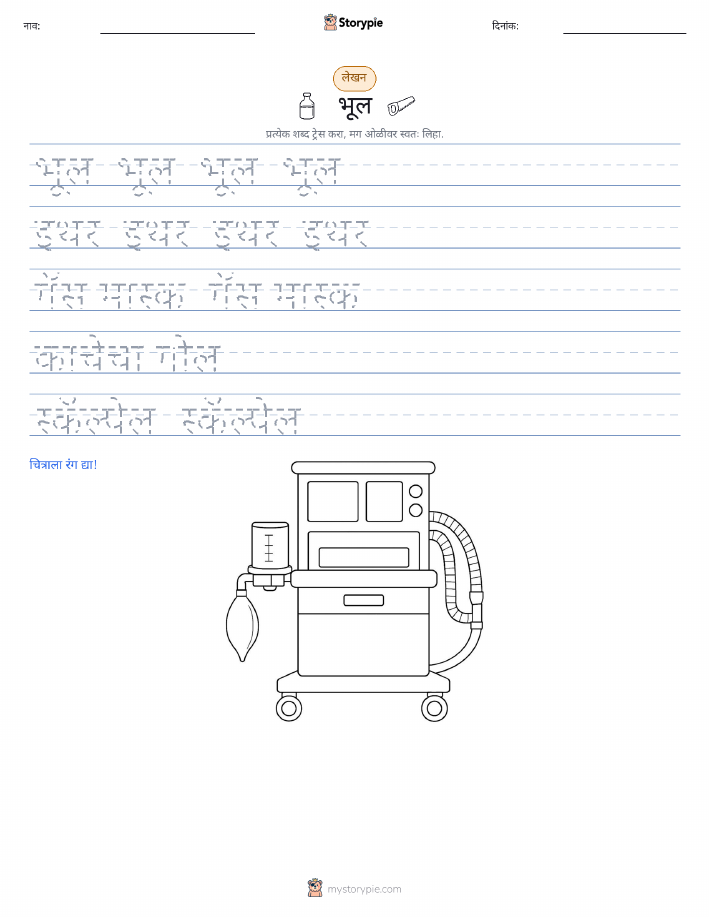 नाव:
Storypie
दिनांक:
लेखन
भूल
प्रत्येक शब्द ट्रेस करा, मग ओळीवर स्वतः लिहा.
भूल भूल भूल भूल
इथर इथर इथर इथर
गॅस मास्क गॅस मास्क
काचेचा गोल
स्कॅल्पेल स्कॅल्पेल
चित्राला रंग द्या!
mystorypie.com